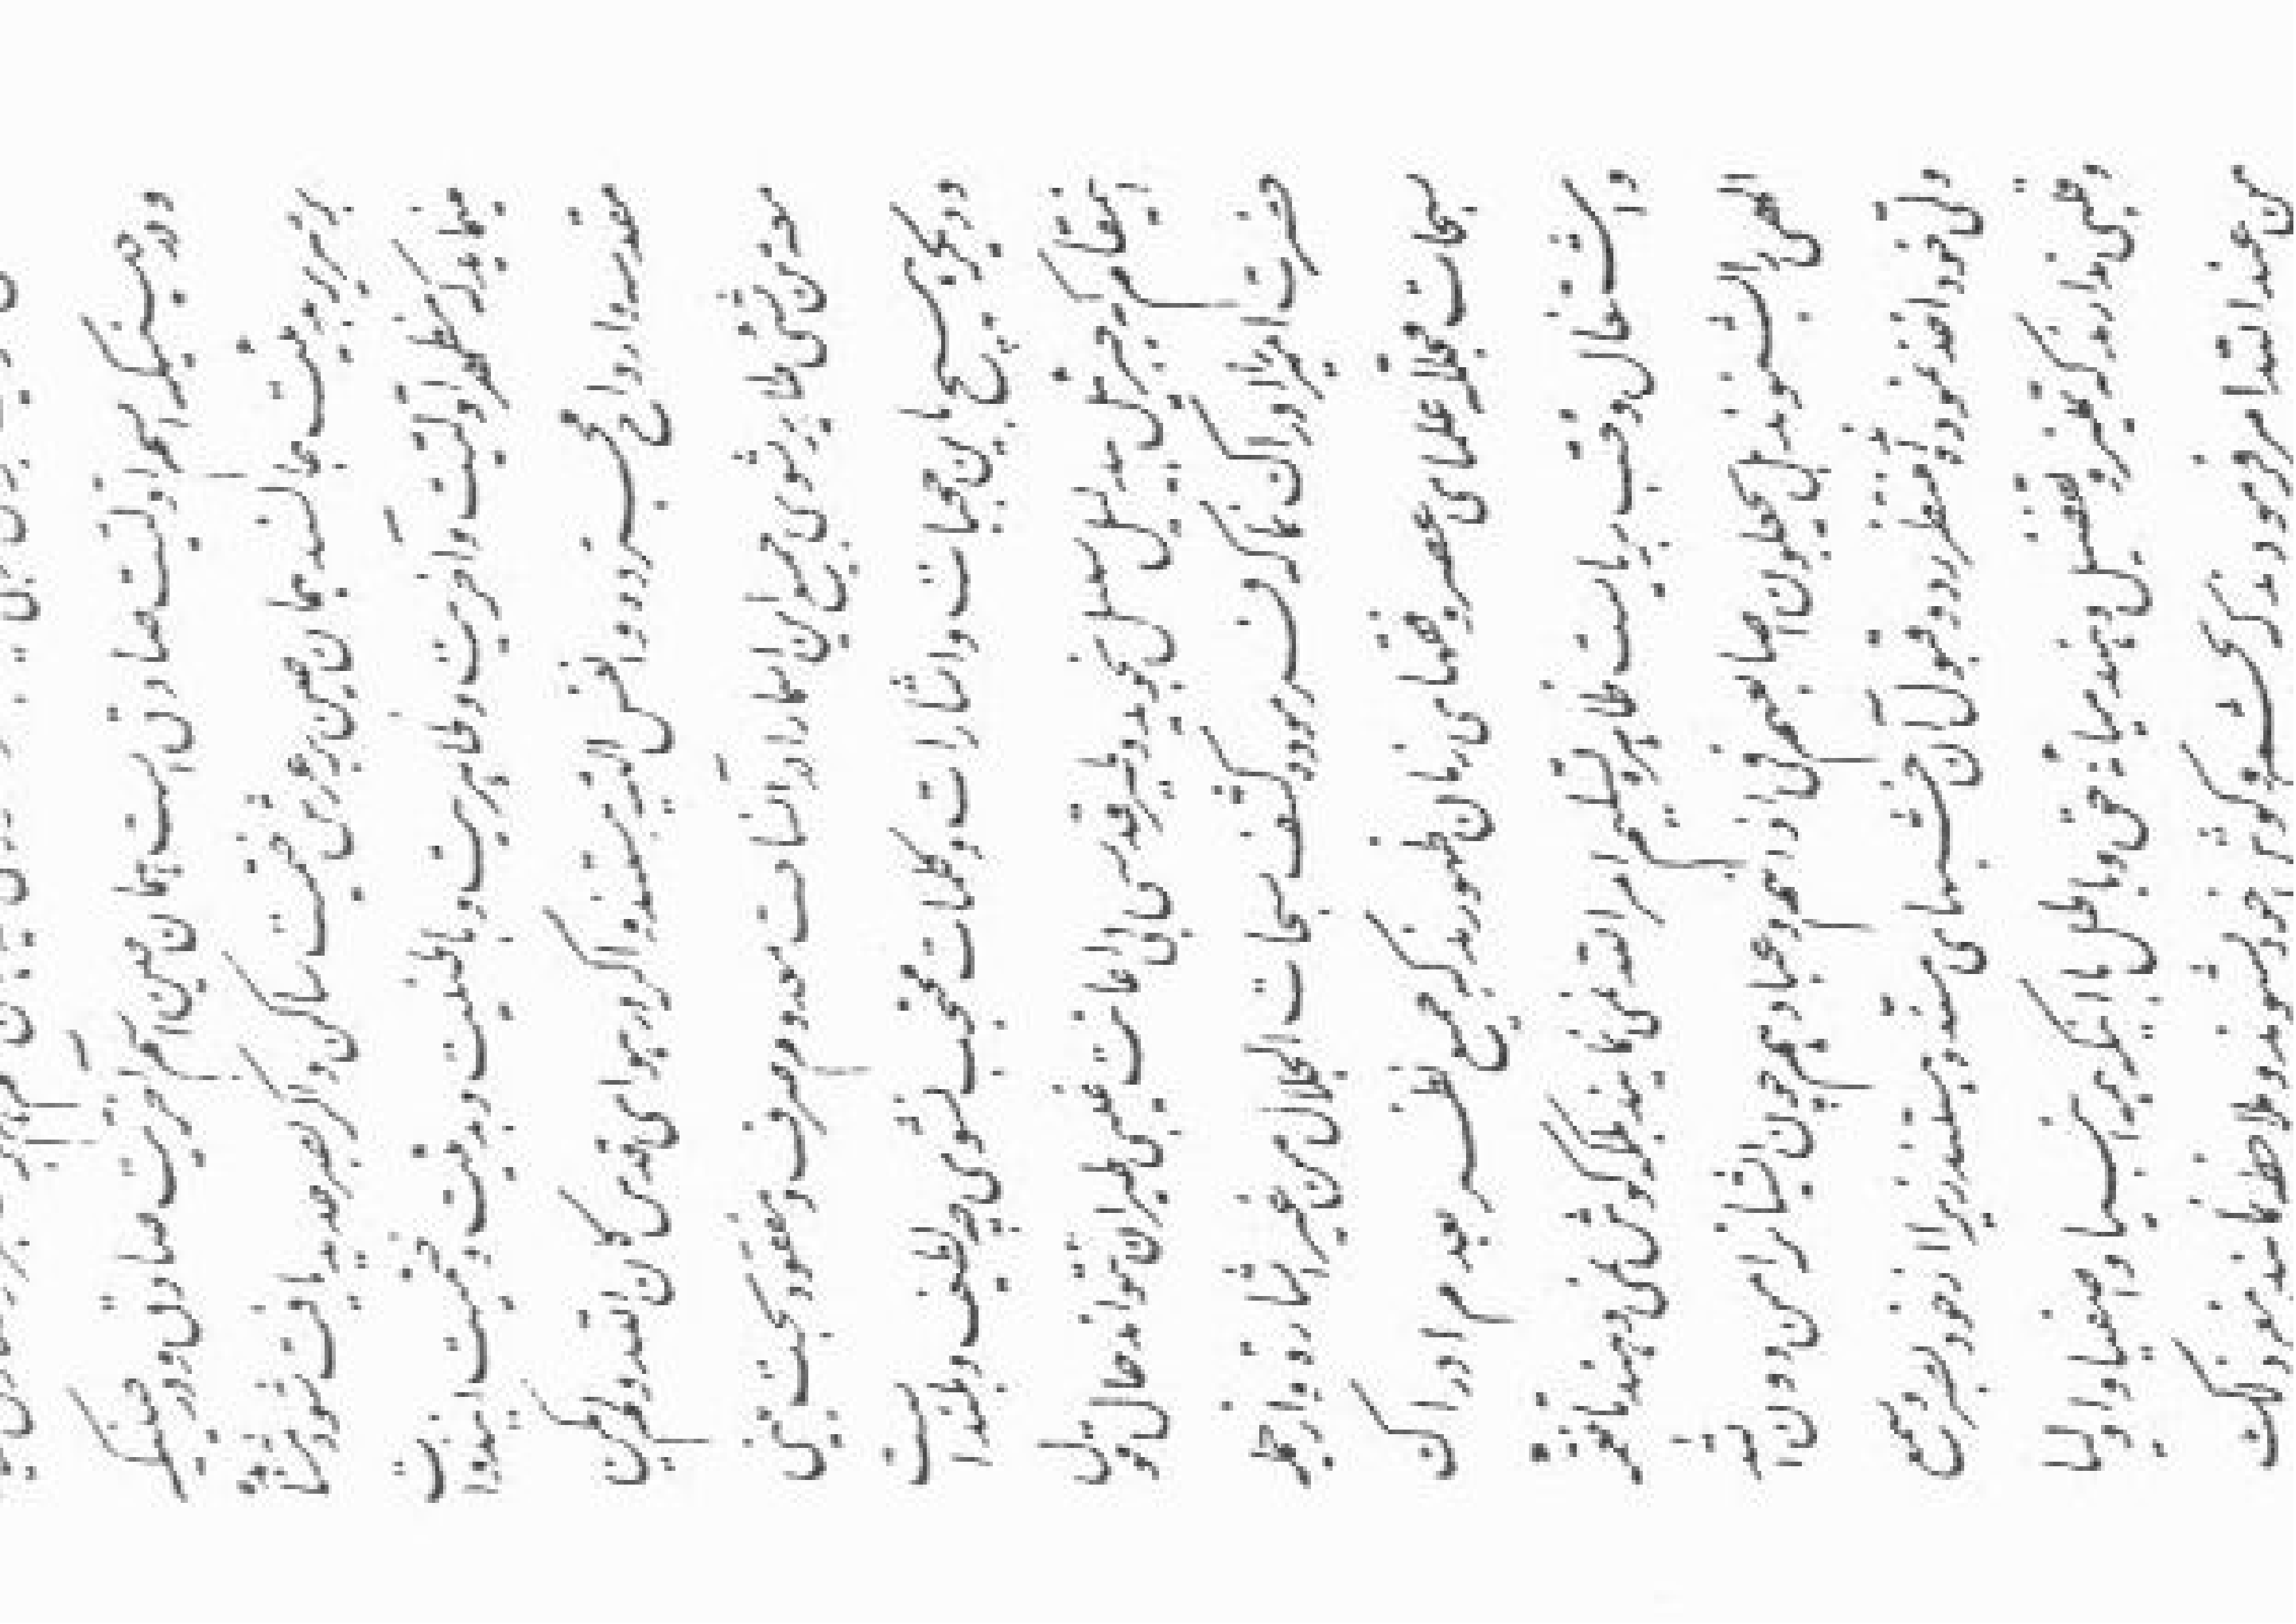 و در حینیکه اسم اولیت صادق است همان حین اسم آخریت صادق و در حینیکه
بر سریر بدئیت جالسند همان حین بر عرش ختمیت ساکن و اگر بصر حدید یافت شود مشاهده
مینماید که مظهر اولیت و آخریت و ظاهریت و باطنیت و بدئیت و ختمیت این ذوات
مقدسه و ارواح مجرده و انفس الهیه هستند و اگر در هوای قدس کان الله و لم یکن
معه من شیء طایر شوی جمیع این اسما را در آن ساحت معدوم صرف و مفقود بحت بینی
و دیگر هیچ باین حجبات و اشارات و کلمات محتجب نشوی چه لطیف و بلند است
این مقام که جبرئیل بیدلیل سبیل نجوید و طیر قدسی بی اعانت غیبی طیران نتواند حال قول
حضرت امیر را ادراک نما که فرموده کشف سبحات الجلال من غیر اشاره و از جمله
سبحات مجلله علمای عصر و فقهای زمان ظهورند که جمیع نظر بعدم ادراک
و اشتغال و حب بریاست ظاهره تسلیم امر الله نمی‌نمایند بلکه گوش نمی‌دهند تا نغمه
الهی را بشنوند بل یجعلون اصابعهم فی اذانهم و عباد هم چون ایشان را من دون الله
ولی خود اخذ نموده‌اند منتظر رد و قبول آن خشبهای مسنده هستند زیرا از خود بصر و سمع
و قلبی ندارند که تمیز و تفصیل دهند میانه حق و باطل با اینکه همه انبیا و اصفیا و اولیا
من عند الله امر فرمودند که بچشم و گوش خود بشنوند و ملاحظه نمایند معذلک